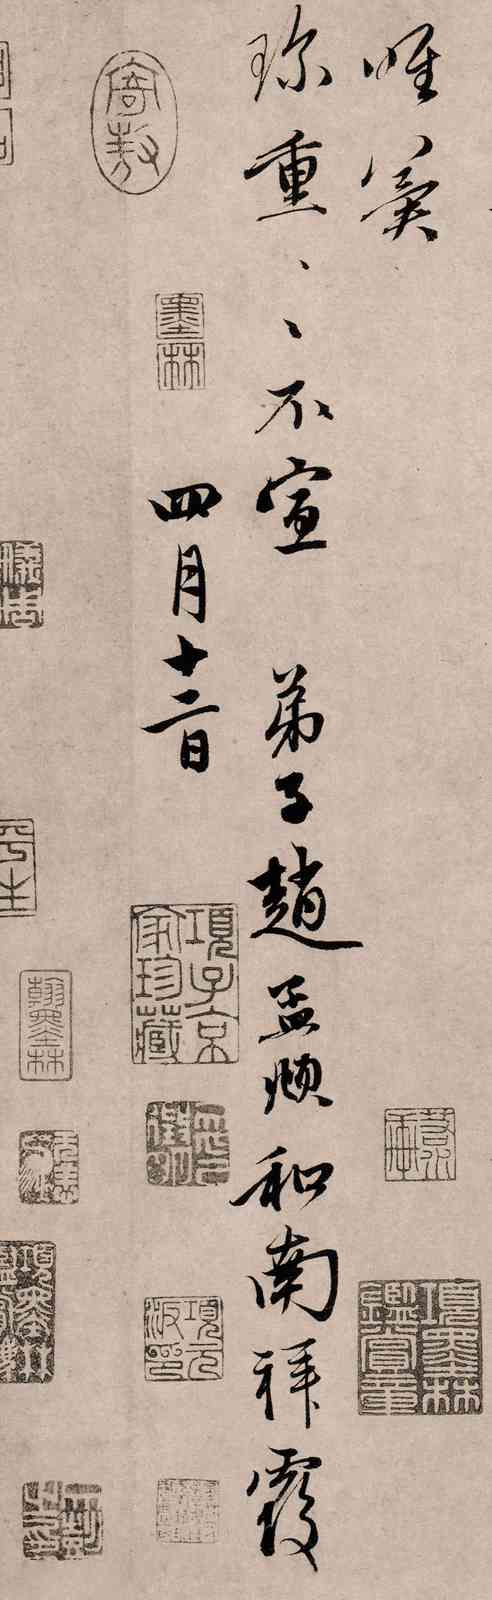 唯冀
珍重、、不宣 弟子趙孟頫和南拜覆
四月十二日
項墨林鑑賞章
寄敖
墨林
項子京家珍藏
項元汴印